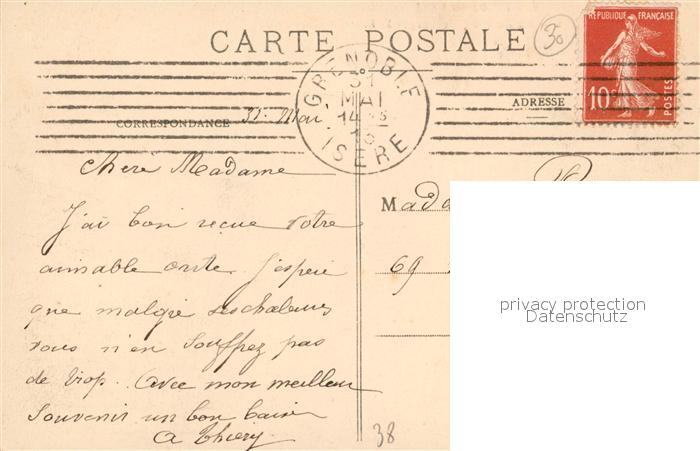 CARTE POSTALE
30
RÉPUBLIQUE FRANÇAISE
10c
POSTES
GRENOBLE
31
MAI
14
ISÈRE
ADRESSE
CORRESPONDANCE
31 Mai
Chere Madame
J'ai bien reçue votre
aimable carte. J'espere
que malgré les chaleurs
vous n'en souffrez pas
de trop. Avec mon meilleur
souvenir un bon baiser
A Thiery
Mada
69
38
privacy protection
Datenschutz